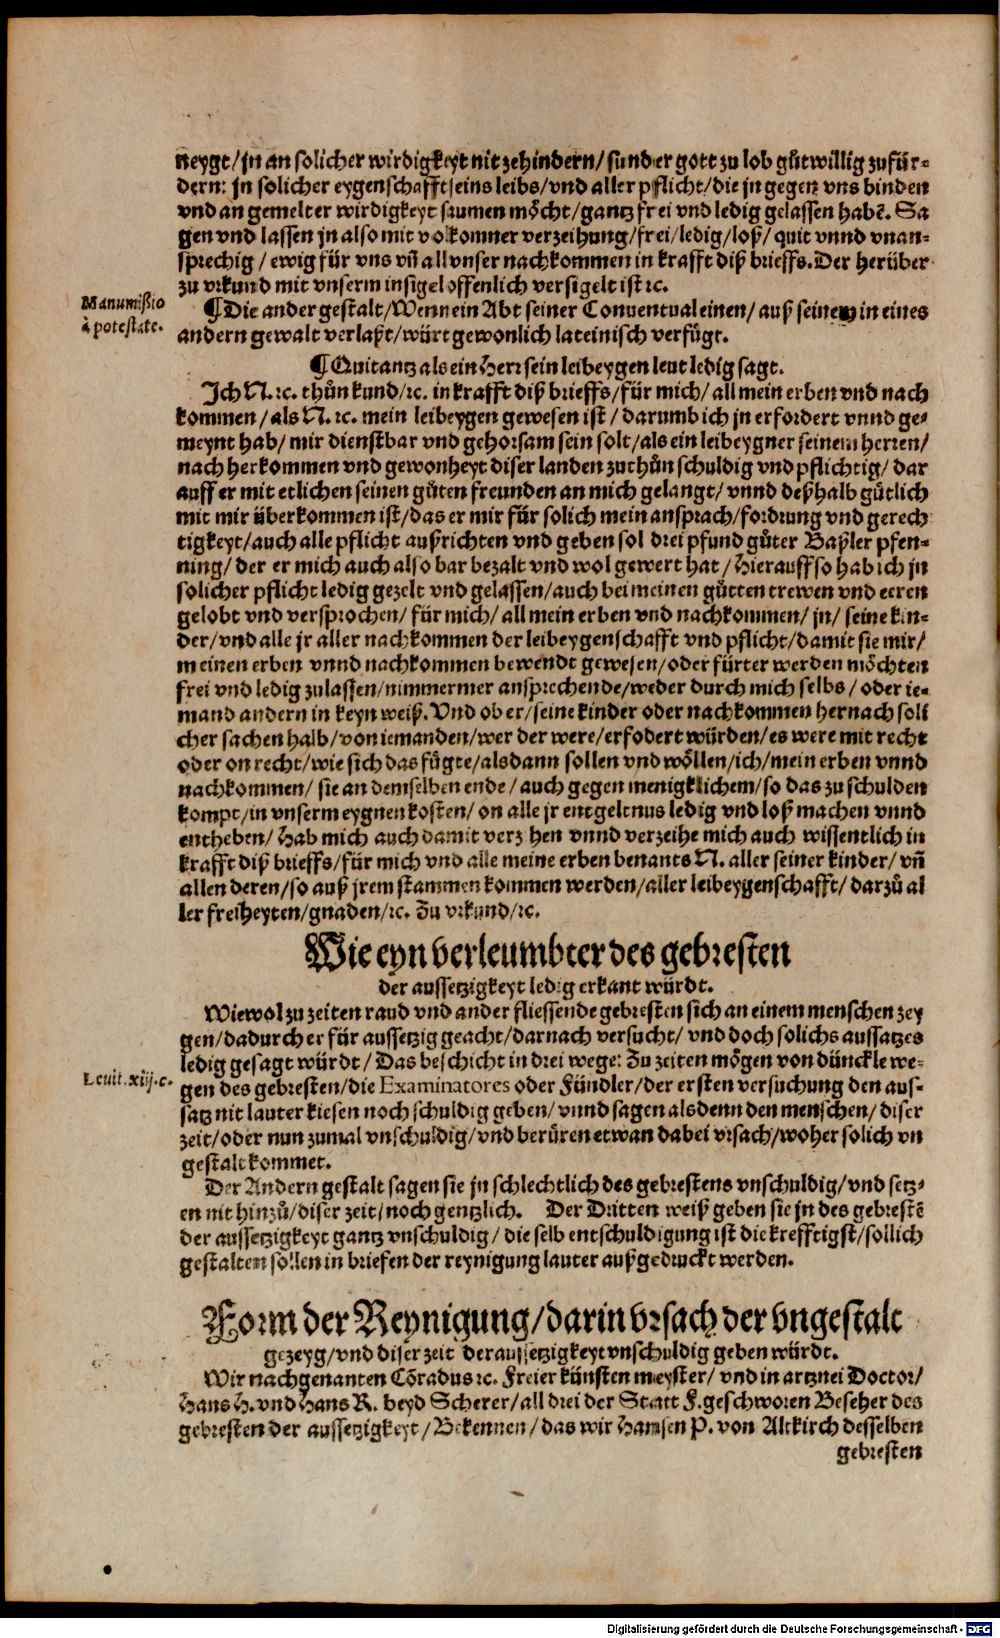 neygt/ jn an solicher wirdigkeyt nit zehindern/ sunder gott zu lob gůtwillig zufür-
dern: jn solicher eygenschafft seins leibs/ vnd aller pflicht/ die jn gegen vns binden
vnd an gemelter wirdigkeyt saumen möcht/ gantz frei vnd ledig gelassen habẽ. Sa
gen vnd lassen jn also mit volkomner verzeihung/ frei/ ledig/ loß/ quit vnnd vnan-
sprechig/ ewig für vns vñ all vnser nachkommen in krafft diß brieffs. Der herüber
zu vrkund mit vnserm insigel offenlich versigelt ist ꝛc.
Manumißio
à potestate.
¶ Die ander gestalt/ Wenn ein Abt seiner Conuentual einen/ auß seinem in eines
andern gewalt verlaßt/ würt gewonlich lateinisch verfügt.
¶ Quitantz als ein Herr sein leibeygen leut ledig sagt.
Ich N. ꝛc. thůn kund/ ꝛc. in krafft diß brieffs/ für mich/ all mein erben vnd nach
kommen/ als N. ꝛc. mein leibeygen gewesen ist/ darumb ich jn erfordert vnnd ge-
meynt hab/ mir dienstbar vnd gehorsam sein solt/ als ein leibeygner seinem herren/
nach herkommen vnd gewonheyt diser landen zuthůn schuldig vnd pflichtig/ dar
auff er mit etlichen seinen gůten freunden an mich gelangt/ vnnd deßhalb gůtlich
mit mir überkommen ist/ das er mir für solich mein ansprach/ fordrung vnd gerech
tigkeyt/ auch alle pflicht außrichten vnd geben sol drei pfund gůter Baßler pfen-
ning/ der er mich auch also bar bezalt vnd wol gewert hat/ Hierauff so hab ich jn
solicher pflicht ledig gezelt vnd gelassen/ auch bei meinen gůtten trewen vnd eeren
gelobt vnd versprochen/ für mich/ all mein erben vnd nachkommen/ jn/ seine kin-
der/ vnd alle jr aller nachkommen der leibeygenschafft vnd pflicht/ damit sie mir/
meinen erben vnnd nachkommen bewendt gewesen/ oder fürter werden möchten
frei vnd ledig zulassen/ nimmermer ansprechende/ weder durch mich selbs/ oder ie-
mand andern in keyn weiß. Vnd ob er/ seine kinder oder nachkommen hernach soli
cher sachen halb/ von iemanden/ wer der were/ erfodert würden/ es were mit recht
oder on recht/ wie sich das fůgte/ als dann sollen vnd wöllen/ ich/ mein erben vnnd
nachkommen/ sie an demselben ende/ auch gegen menigklichem/ so das zu schulden
kompt/ in vnserm eygnen kosten/ on alle jr entgeltnus ledig vnd loß machen vnnd
entheben/ Hab mich auch damit verz hen vnnd verzeihe mich auch wissentlich in
krafft diß brieffs/ für mich vnd alle meine erben benants N. aller seiner kinder/ vñ
allen deren/ so auß jrem stammen kommen werden/ aller leibeygenschafft/ darzů al
ler freiheyten/ gnaden/ ꝛc. Zu vrkund/ ꝛc.
Wie eyn verleumbter des gebresten
der aussetzigkeyt ledig erkant würdt.
Wiewol zu zeiten raud vnd ander fliessende gebresten sich an einem menschen zey
gen/ dadurch er für aussetzig geacht/ darnach versucht/ vnd doch solichs aussatzes
ledig gesagt würdt/ Das beschicht in drei wege: Zu zeiten mögen von dünckle we-
Leuit. xiij. c.
gen des gebresten/ die Examinatores oder Fündler/ der ersten versuchung den aus-
satz nit lauter kiesen noch schuldig geben/ vnnd sagen als denn den menschen/ diser
zeit/ oder nun zumal vnschuldig/ vnd berüren etwan dabei vrsach/ woher solich vn
gestalt kommet.
Der Andern gestalt sagen sie jn schlechtlich des gebrestens vnschuldig/ vnd setz-
en nit hinzů/ diser zeit/ noch gentzlich. Der Dritten weiß geben sie jn des gebrestẽ
der aussetzigkeyt gantz vnschuldig/ die selb entschuldigung ist die krefftigst/ sollich
gestalten sollen in briefen der reynigung lauter außgedruckt werden.
Form der Reynigung/ darin vrsach der vngestalt
gezeyg/ vnd diser zeit der aussetzigkeyt vnschuldig geben würdt.
Wir nachgenanten Cõradus ꝛc. Freier künsten meyster/ vnd in artznei Doctor/
Hans H. vnd Hans R. beyd Scherer/ all drei der Statt F. geschworen Beseher des
gebresten der aussetzigkeyt/ Bekennen/ das wir Hansen P. von Altkirch desselben
gebresten
Digitalisierung gefördert durch die Deutsche Forschungsgemeinschaft - DFG